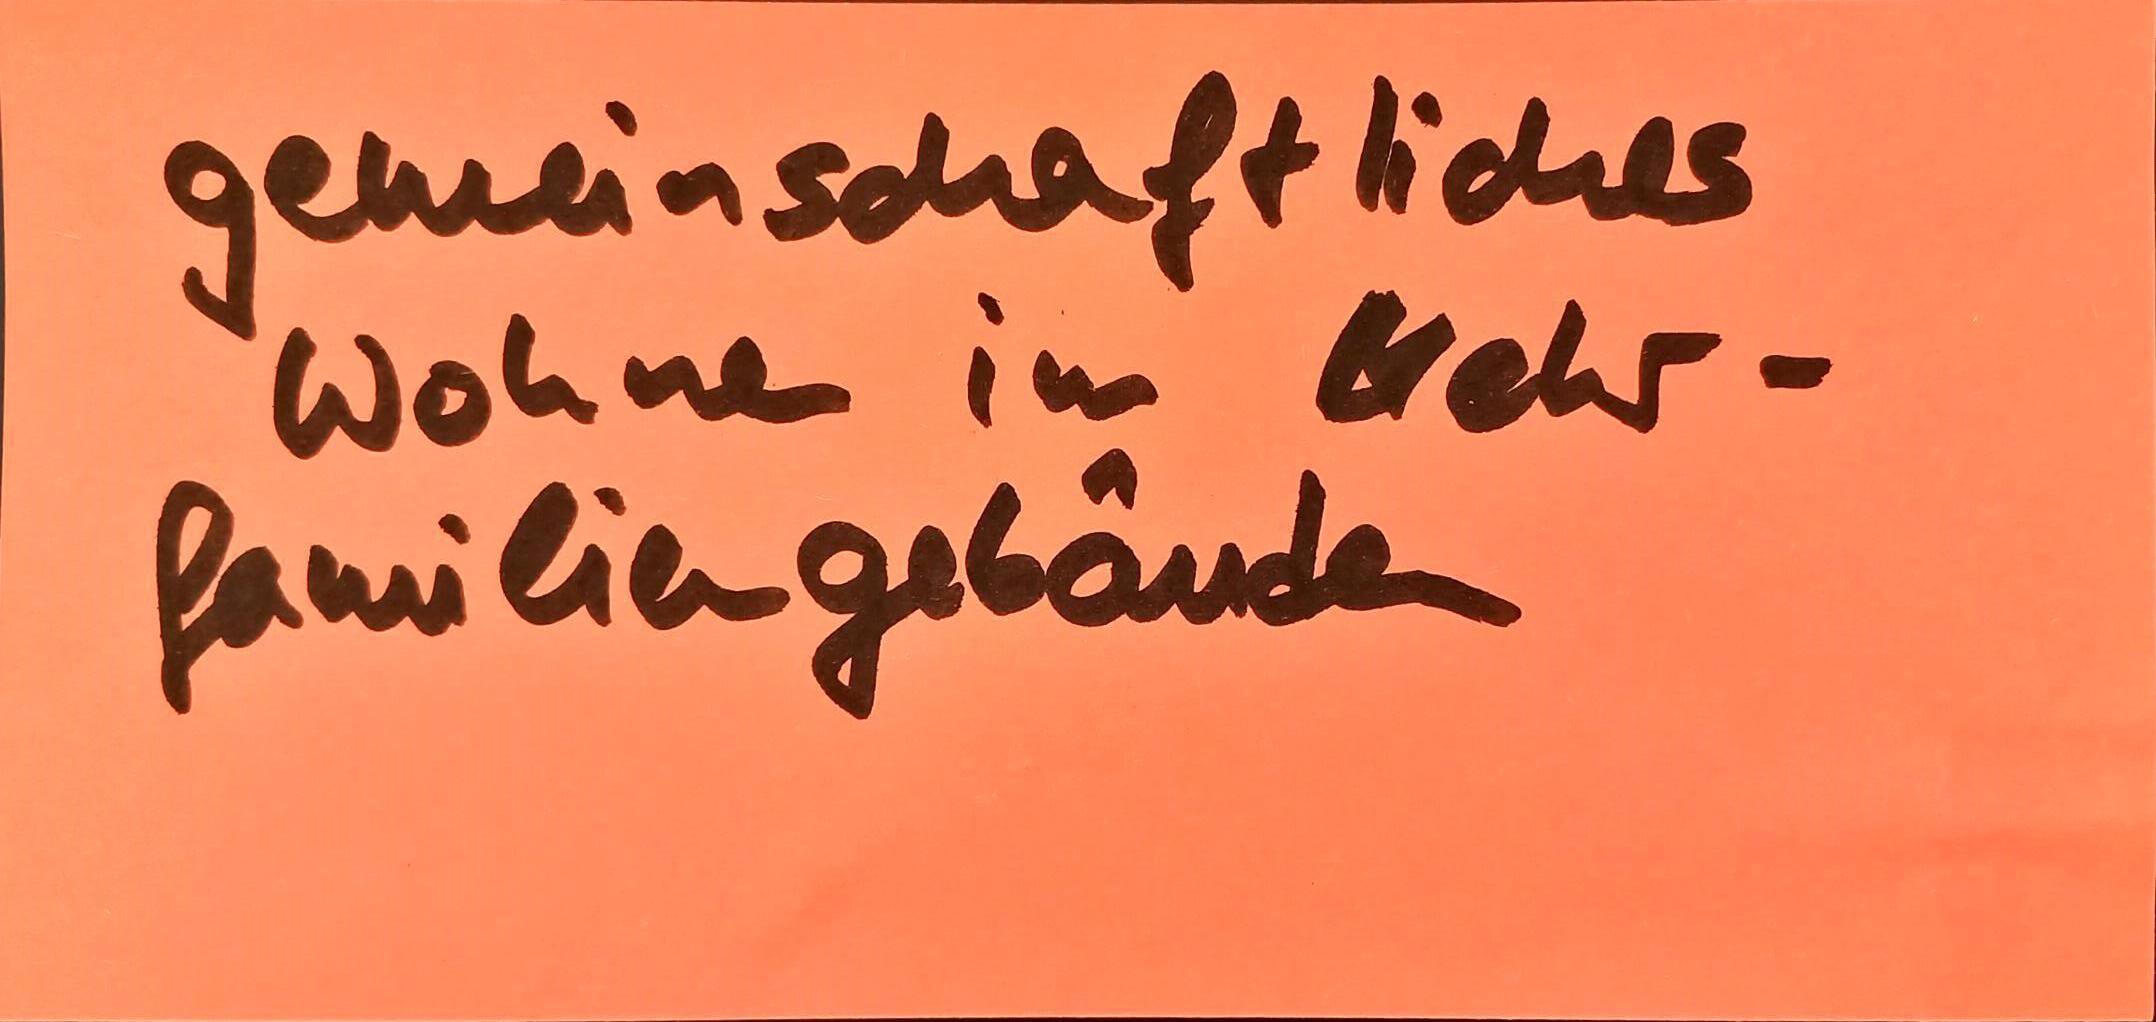 gemeinschaftliches
Wohnen im Mehr-
familiengebäuden